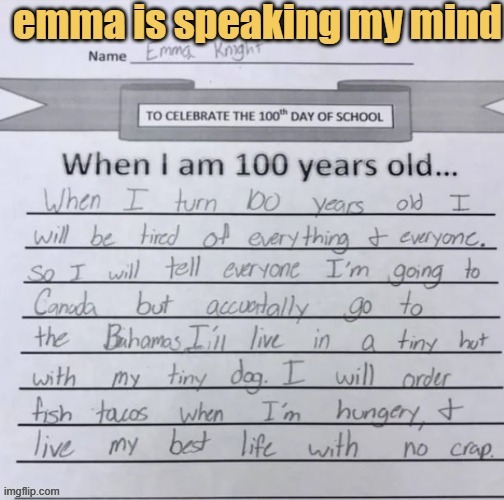 emma is speaking my mind
Name Emma Knight
TO CELEBRATE THE 100th DAY OF SCHOOL
When I am 100 years old...
When I turn 100 years old I
will be tired of everything & everyone.
so I will tell everyone I'm going to
Canada but accuartally go to
the Bahamas. I'ill live in a tiny hut
with my tiny dog. I will order
fish tacos when I'm hungery, &
live my best life with no crap.
imgflip.com